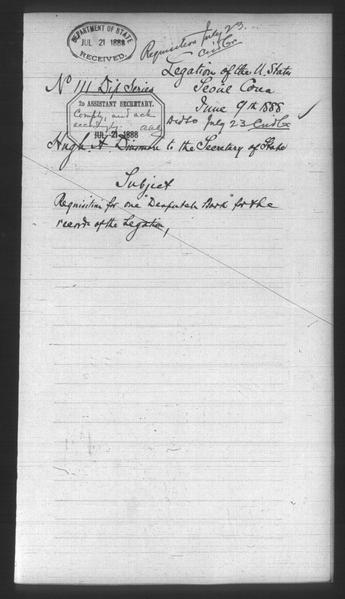 DEPARTMENT OF STATE
JUL 21 1888
RECEIVED.
Requisition July 23.
Legation of the U. States
No 111 Dip Series
Seoul Corea
2D ASSISTANT SECRETARY.
June 9th 1888
Comply, and ack
accordingly. AAA
JUL 21 1888
July 23
Hugh A Dinsmore to the Secretary of State
Subject
Requisition for one "Despatch Book" for the
records of the Legation,